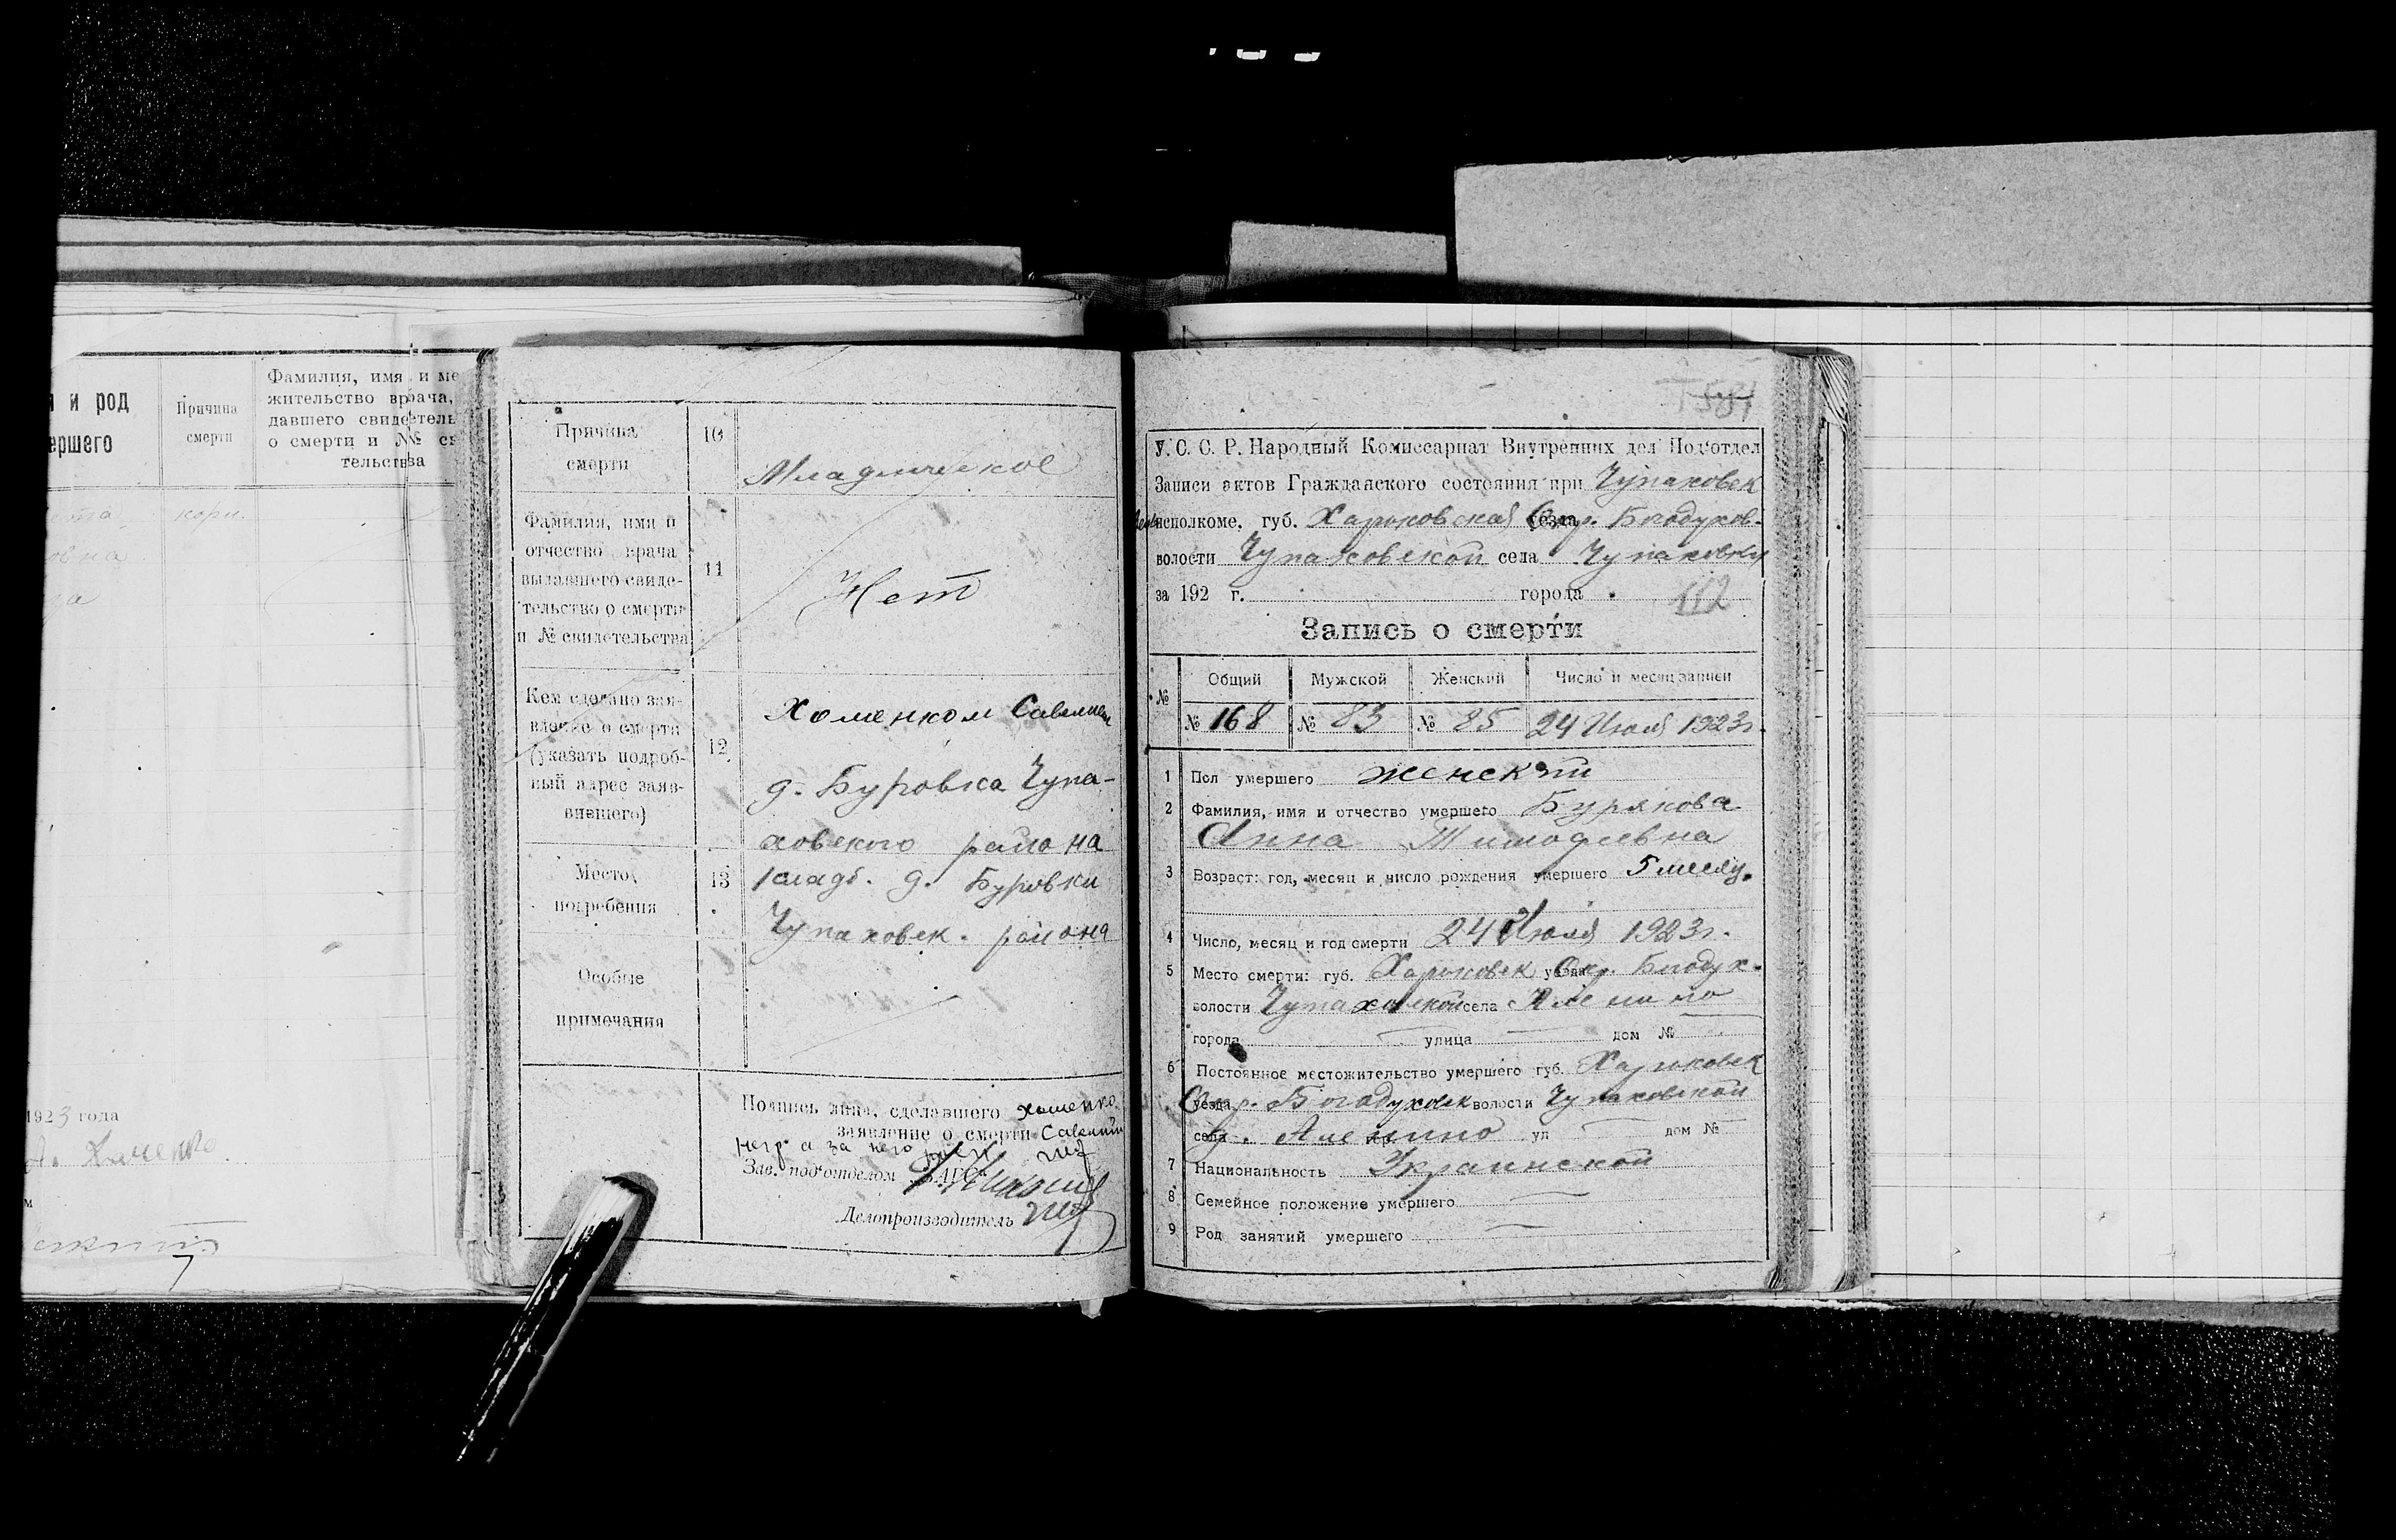 и род
ершего
Причина
смерти
Фамилия, имя и ме
жительство врача,
давшего свидетель
о смерти и №№ св
тельства
овна
1923 года
Причина
смерти
10
Младенческое
Фамилия, имя и
отчество врача
выдавшего свиде-
тельство о смерти
и № свидетельства
11
Нет
Кем сделано зая-
вление о смерти
(указать подроб-
ный адрес заяв-
вившего)
12
Хоменком Савелием
д. Буровка Чупа-
ховского района
Место
погребения
13
кладб. д. Буровки
Чупаховск. района
Особые
примечания
Подпись лица, сделавшего Хоменко
заявление о смерти Савелий
негр а за него
Зав. под'отделом ЗАГС'а
Делопроизводитель
У. С. С. Р. Народный Комиссариат Внутренних дел Под'отдел
Записи актов Гражданского состояния при Чупаховск
исполкоме, губ. Харьковская уезда Окр. Богодухов.
волости Чупаховской села Чупаховки
за 192 г. города
112
Запись о смерти
№ Общий Мужской Женский Число и месяц записи
№ 168 № 83 № 85 24 Июля 1923г.
1 Пол умершего женский
2 Фамилия, имя и отчество умершего Бурякова
Анна Тимофеевна
3 Возраст: год, месяц и число рождения умершего 5 месяц.
4 Число, месяц и год смерти 24 Июля 1923г.
5 Место смерти: губ. Харьковск уезда Окр. Богодух.
волости Чупаховской села
города улица дом №
6 Постоянное местожительство умершего губ. Харьковск
уезда Окр. Богодуховск волости Чупаховской
села ул дом №
7 Национальность Украинской
8 Семейное положение умершего
9 Род занятий умершего